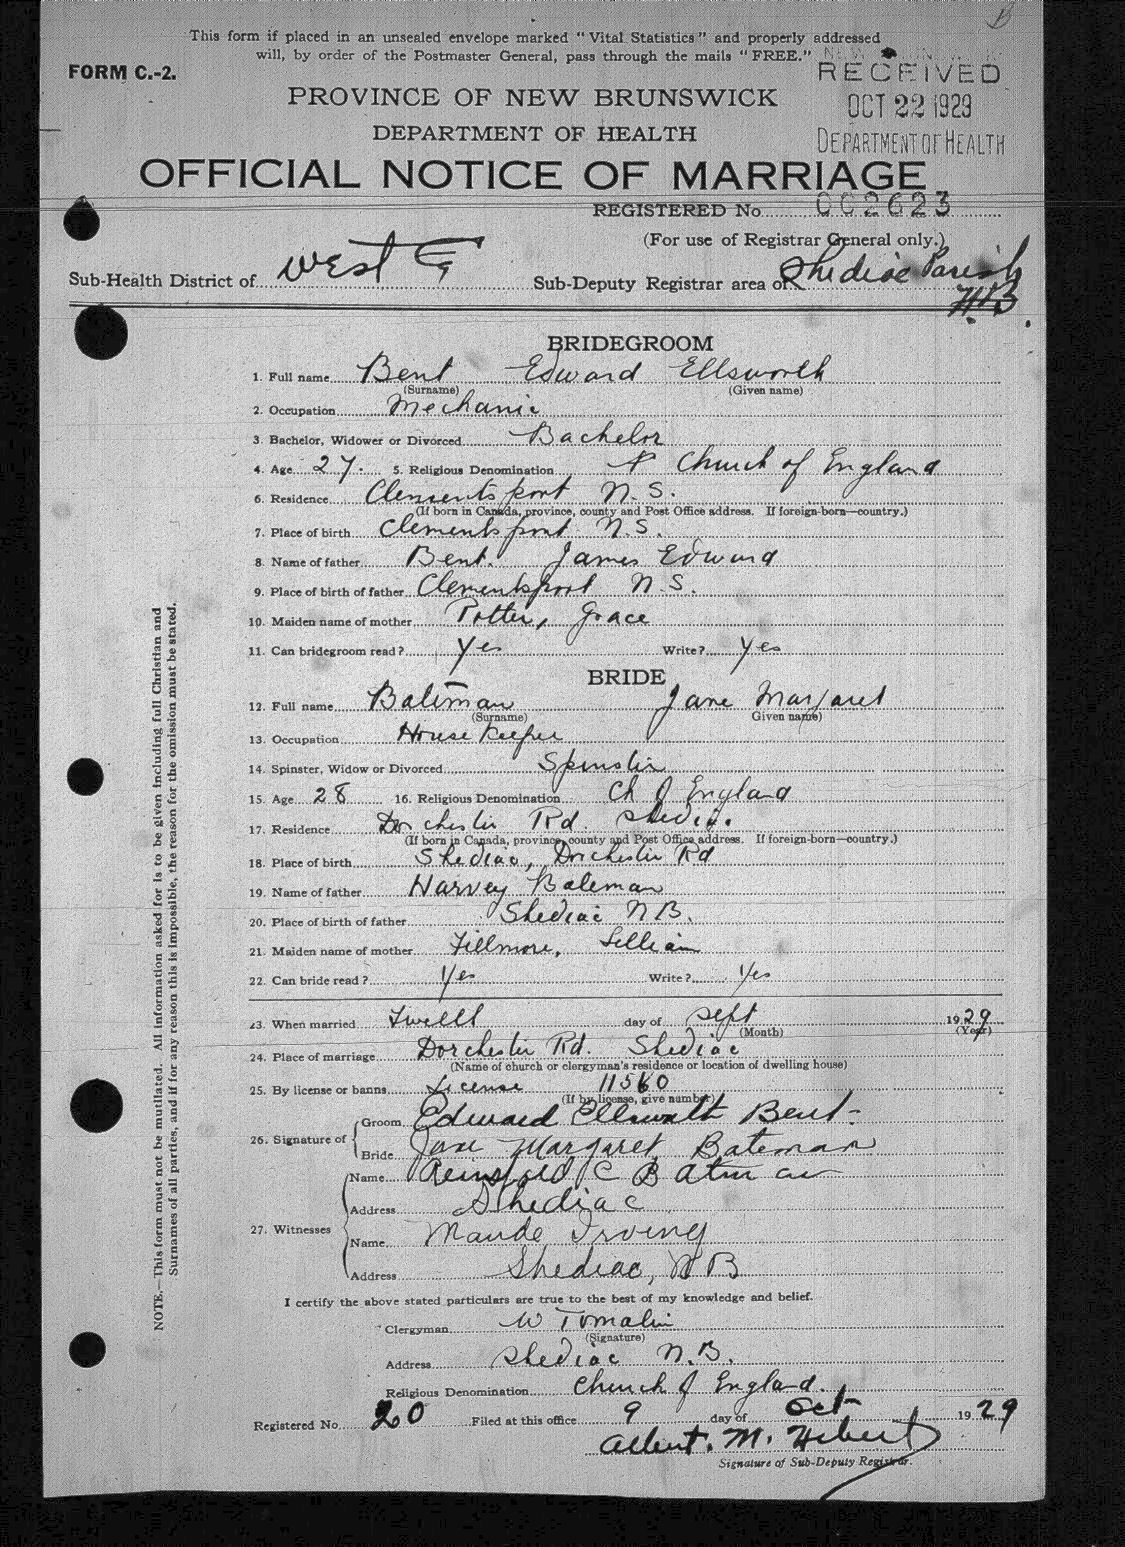 This form if placed in an unsealed envelope marked "Vital Statistics" and properly addressed
will, by order of the Postmaster General, pass through the mails "FREE."
FORM C.-2.
RECEIVED
OCT 22 1929
DEPARTMENT OF HEALTH
PROVINCE OF NEW BRUNSWICK
DEPARTMENT OF HEALTH
OFFICIAL NOTICE OF MARRIAGE
REGISTERED No. 002623
(For use of Registrar General only.)
Sub-Health District of West
Sub-Deputy Registrar area of Shediac Parish
N.B.
BRIDEGROOM
1. Full name Bent Edward Ellsworth
(Surname) (Given name)
2. Occupation Mechanic
3. Bachelor, Widower or Divorced Bachelor
4. Age 27. 5. Religious Denomination Church of England
6. Residence Clementsport N.S.
(If born in Canada, province, county and Post Office address. If foreign-born—country.)
7. Place of birth Clementsport N.S.
8. Name of father Bent. James Edward
9. Place of birth of father Clementsport N.S.
10. Maiden name of mother Potter, Grace
11. Can bridegroom read? Yes Write? Yes
BRIDE
12. Full name Bateman Jane Margaret
(Surname) Given name)
13. Occupation House Keeper
14. Spinster, Widow or Divorced Spinster
15. Age 28 16. Religious Denomination Ch of England
17. Residence Dorchester Rd. Shediac
(If born in Canada, province, county and Post Office address. If foreign-born—country.)
18. Place of birth Shediac, Dorchester Rd
19. Name of father Harvey Bateman
20. Place of birth of father Shediac N.B.
21. Maiden name of mother Fillmore, Lillian
22. Can bride read? Yes Write? Yes
23. When married day of Sept 1929
(Month) (Year)
24. Place of marriage Dorchester Rd. Shediac
(Name of church or clergyman's residence or location of dwelling house)
25. By license or banns License 11560
(If by license, give number)
26. Signature of
Groom Edward Ellsworth Bent
Bride Jane Margaret Bateman
27. Witnesses
Name C Bateman
Address Shediac
Name Maude Irving
Address Shediac, N B
I certify the above stated particulars are true to the best of my knowledge and belief.
Clergyman W Tomalin
(Signature)
Address Shediac N.B.
Religious Denomination Church of England.
Registered No. 20 Filed at this office 9 day of Oct 1929
Albert. M. Hebert
Signature of Sub-Deputy Registrar.
NOTE.—This form must not be mutilated. All information asked for is to be given including full Christian and
Surnames of all parties, and if for any reason this is impossible, the reason for the omission must be stated.